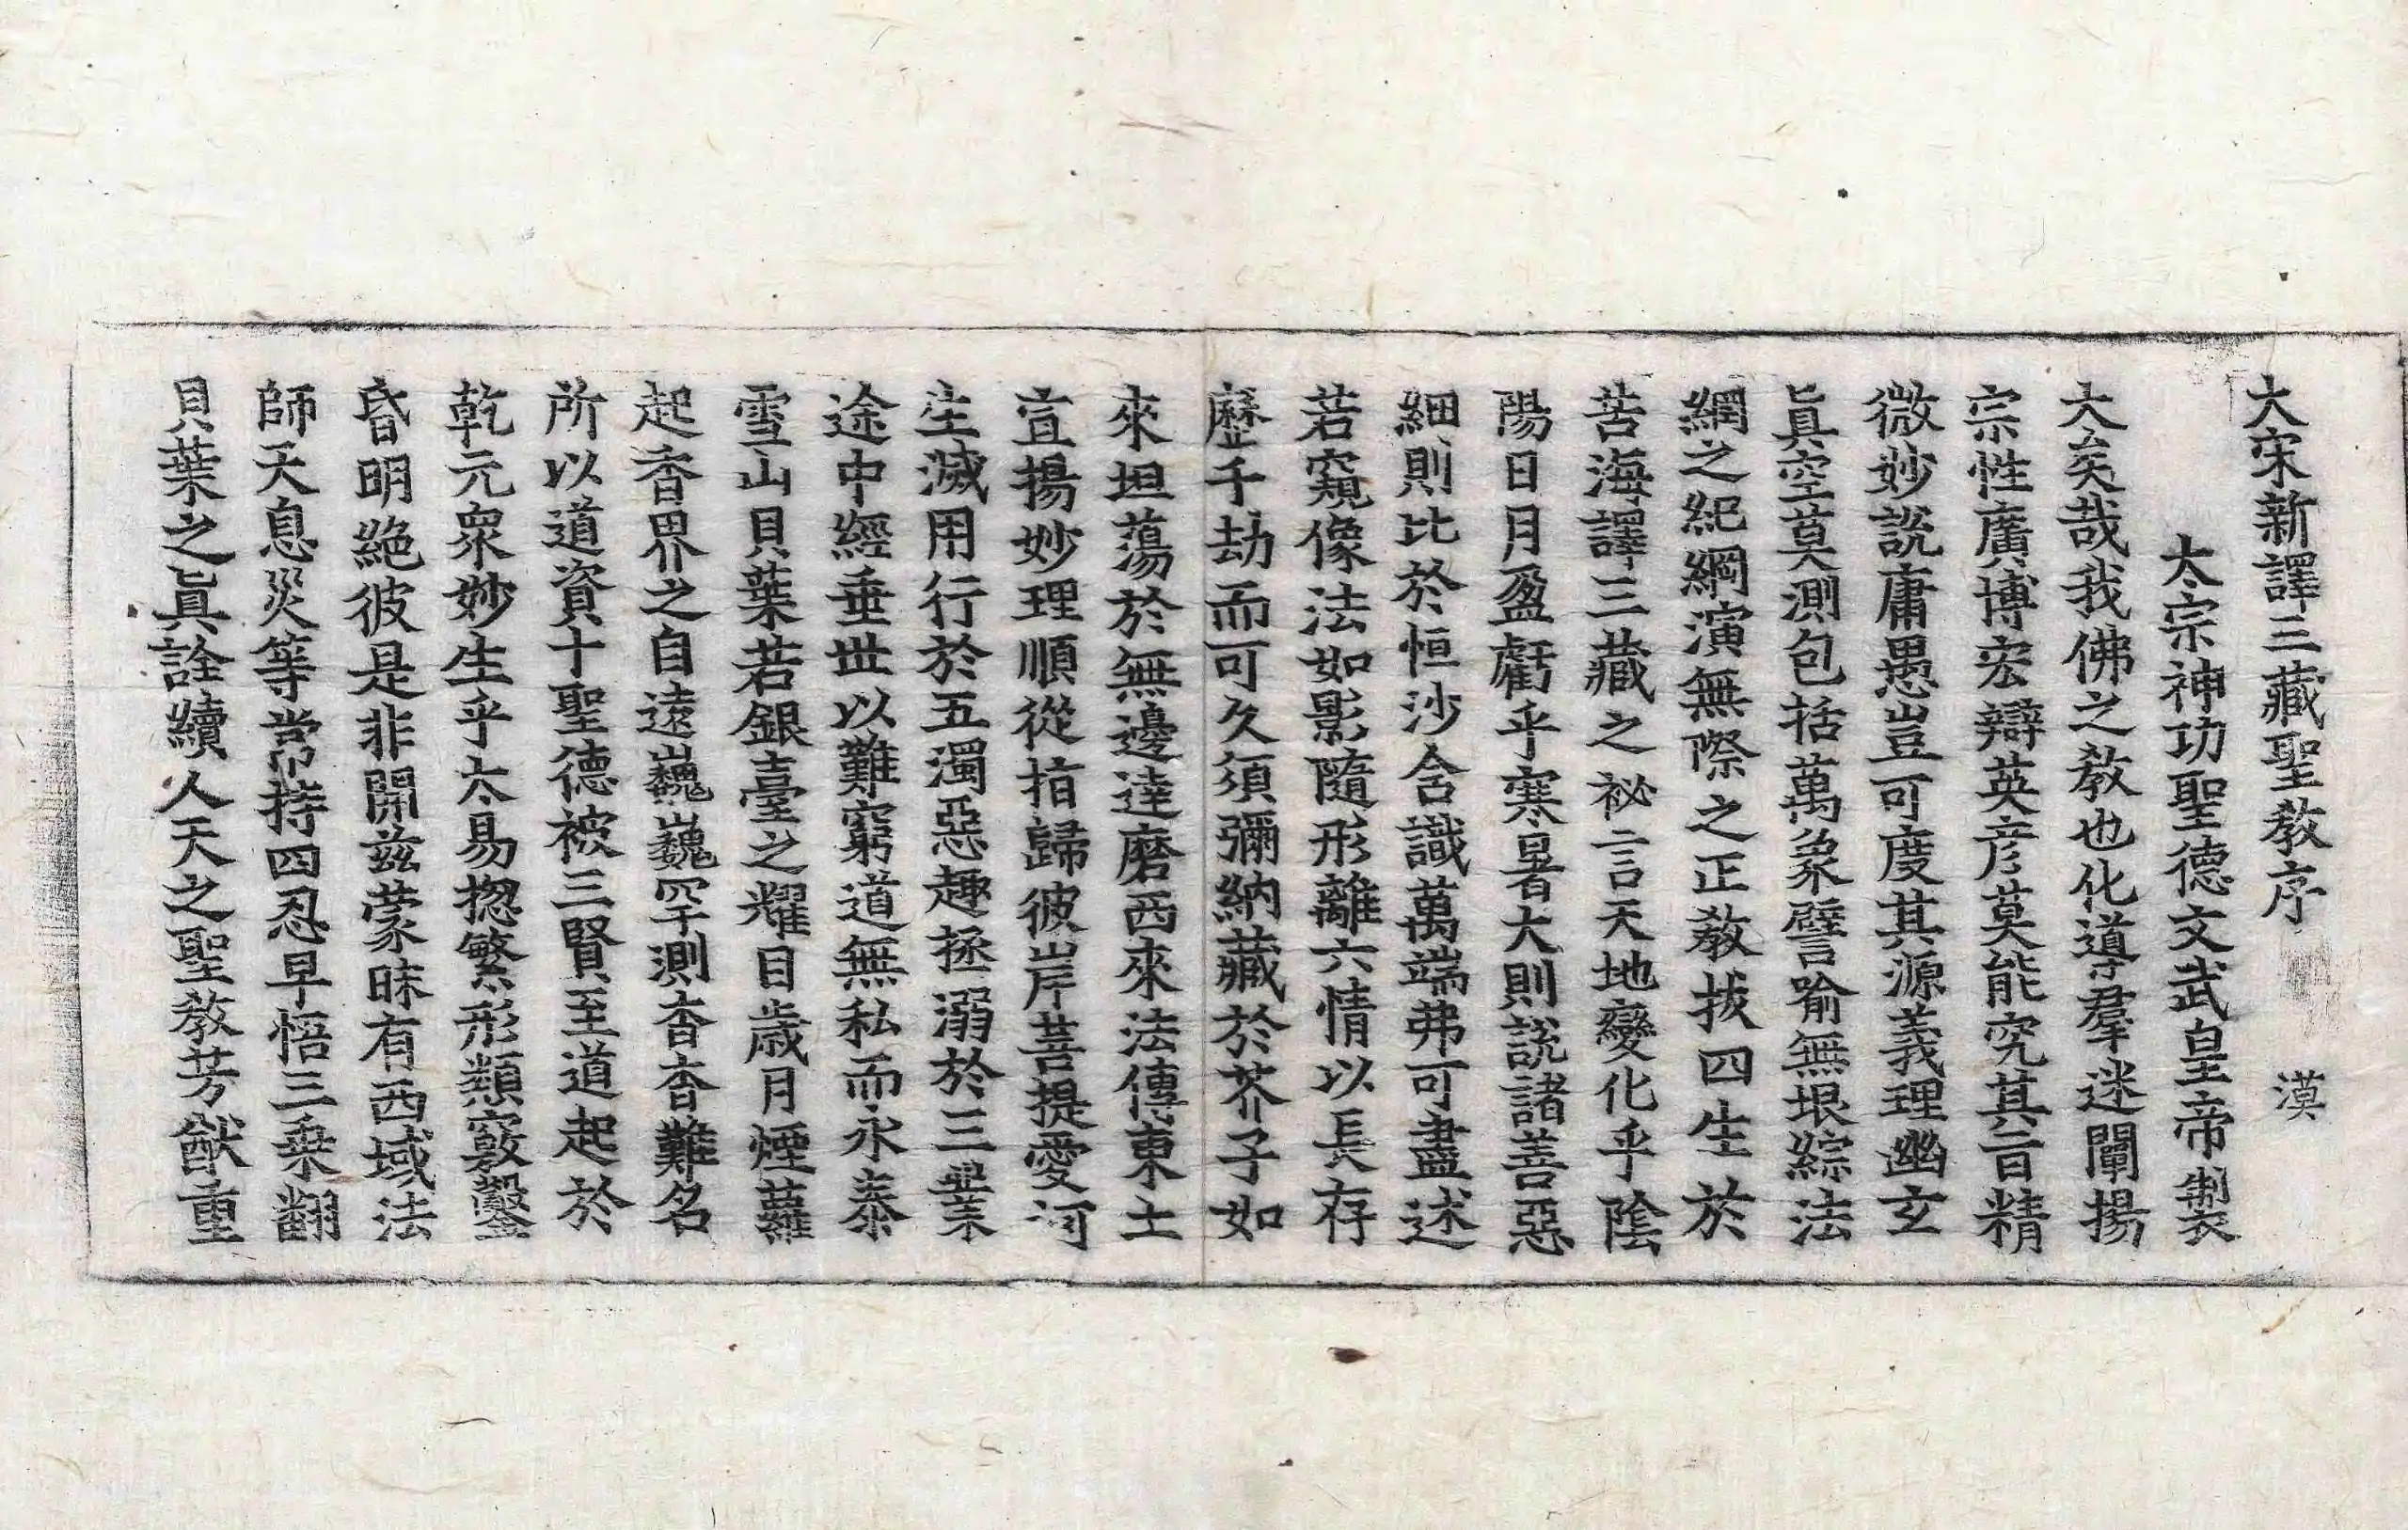 大宋新譯三藏聖教序 漠
太宗神功聖德文武皇帝製
大矣哉我佛之教也化導羣迷闡揚
宗性廣博宏辯英彦莫能究其旨精
微妙說庸愚豈可度其源義理幽玄
眞空莫測包括萬象譬喻無垠綜法
網之紀綱演無際之正教拔四生於
苦海譯三藏之祕言天地變化乎陰
陽日月盈虧乎寒暑大則說諸善惡
細則比於恒沙含識萬端弗可盡述
若窺像法如影隨形離六情以長存
歷千劫而可久須彌納藏於芥子如
來坦蕩於無邊達磨西來法傳東土
宣揚妙理順從指歸彼岸菩提愛河
生滅用行於五濁惡趣拯溺於三業
途中經垂世以難窮道無私而永泰
雪山貝葉若銀臺之耀目歲月煙蘿
起香界之自遠巍巍罕測杳杳難名
所以道資十聖德被三賢至道起於
乾元衆妙生乎太易揔繁形類竅鑿
昏明絶彼是非開茲蒙昧有西域法
師天息災等常持四忍早悟三乘翻
貝葉之眞詮續人天之聖教芳猷重